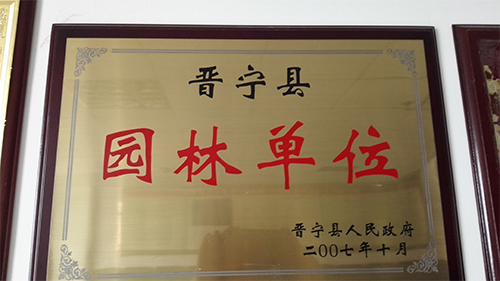 晋宁县
园林单位
晋宁县人民政府
二00七年十月